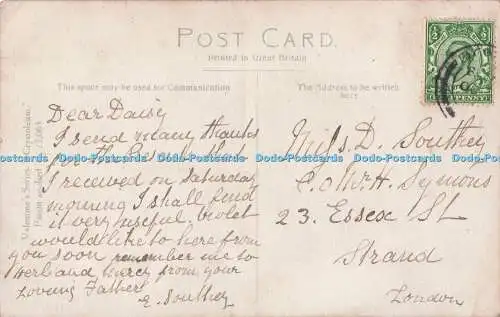 POST CARD.
Printed in Great Britain
This space may be used for Communication
The Address to be written
here
HALF
PENNY
Dear Daisy
I send many thanks
for the
I received on Saturday
morning I shall find
it very useful. Violet
would like to here from
you soon remember me to
Herb and Mercy from your
Loving Father
E. Southey
Miss D. Southey
C. o Mr H. Symons
23. Essex St
Strand
London
Dodo-Postcards Dodo-Postcards Dodo-Postcards Dodo-Postcards Dodo-Postcards Dodo-Postcards